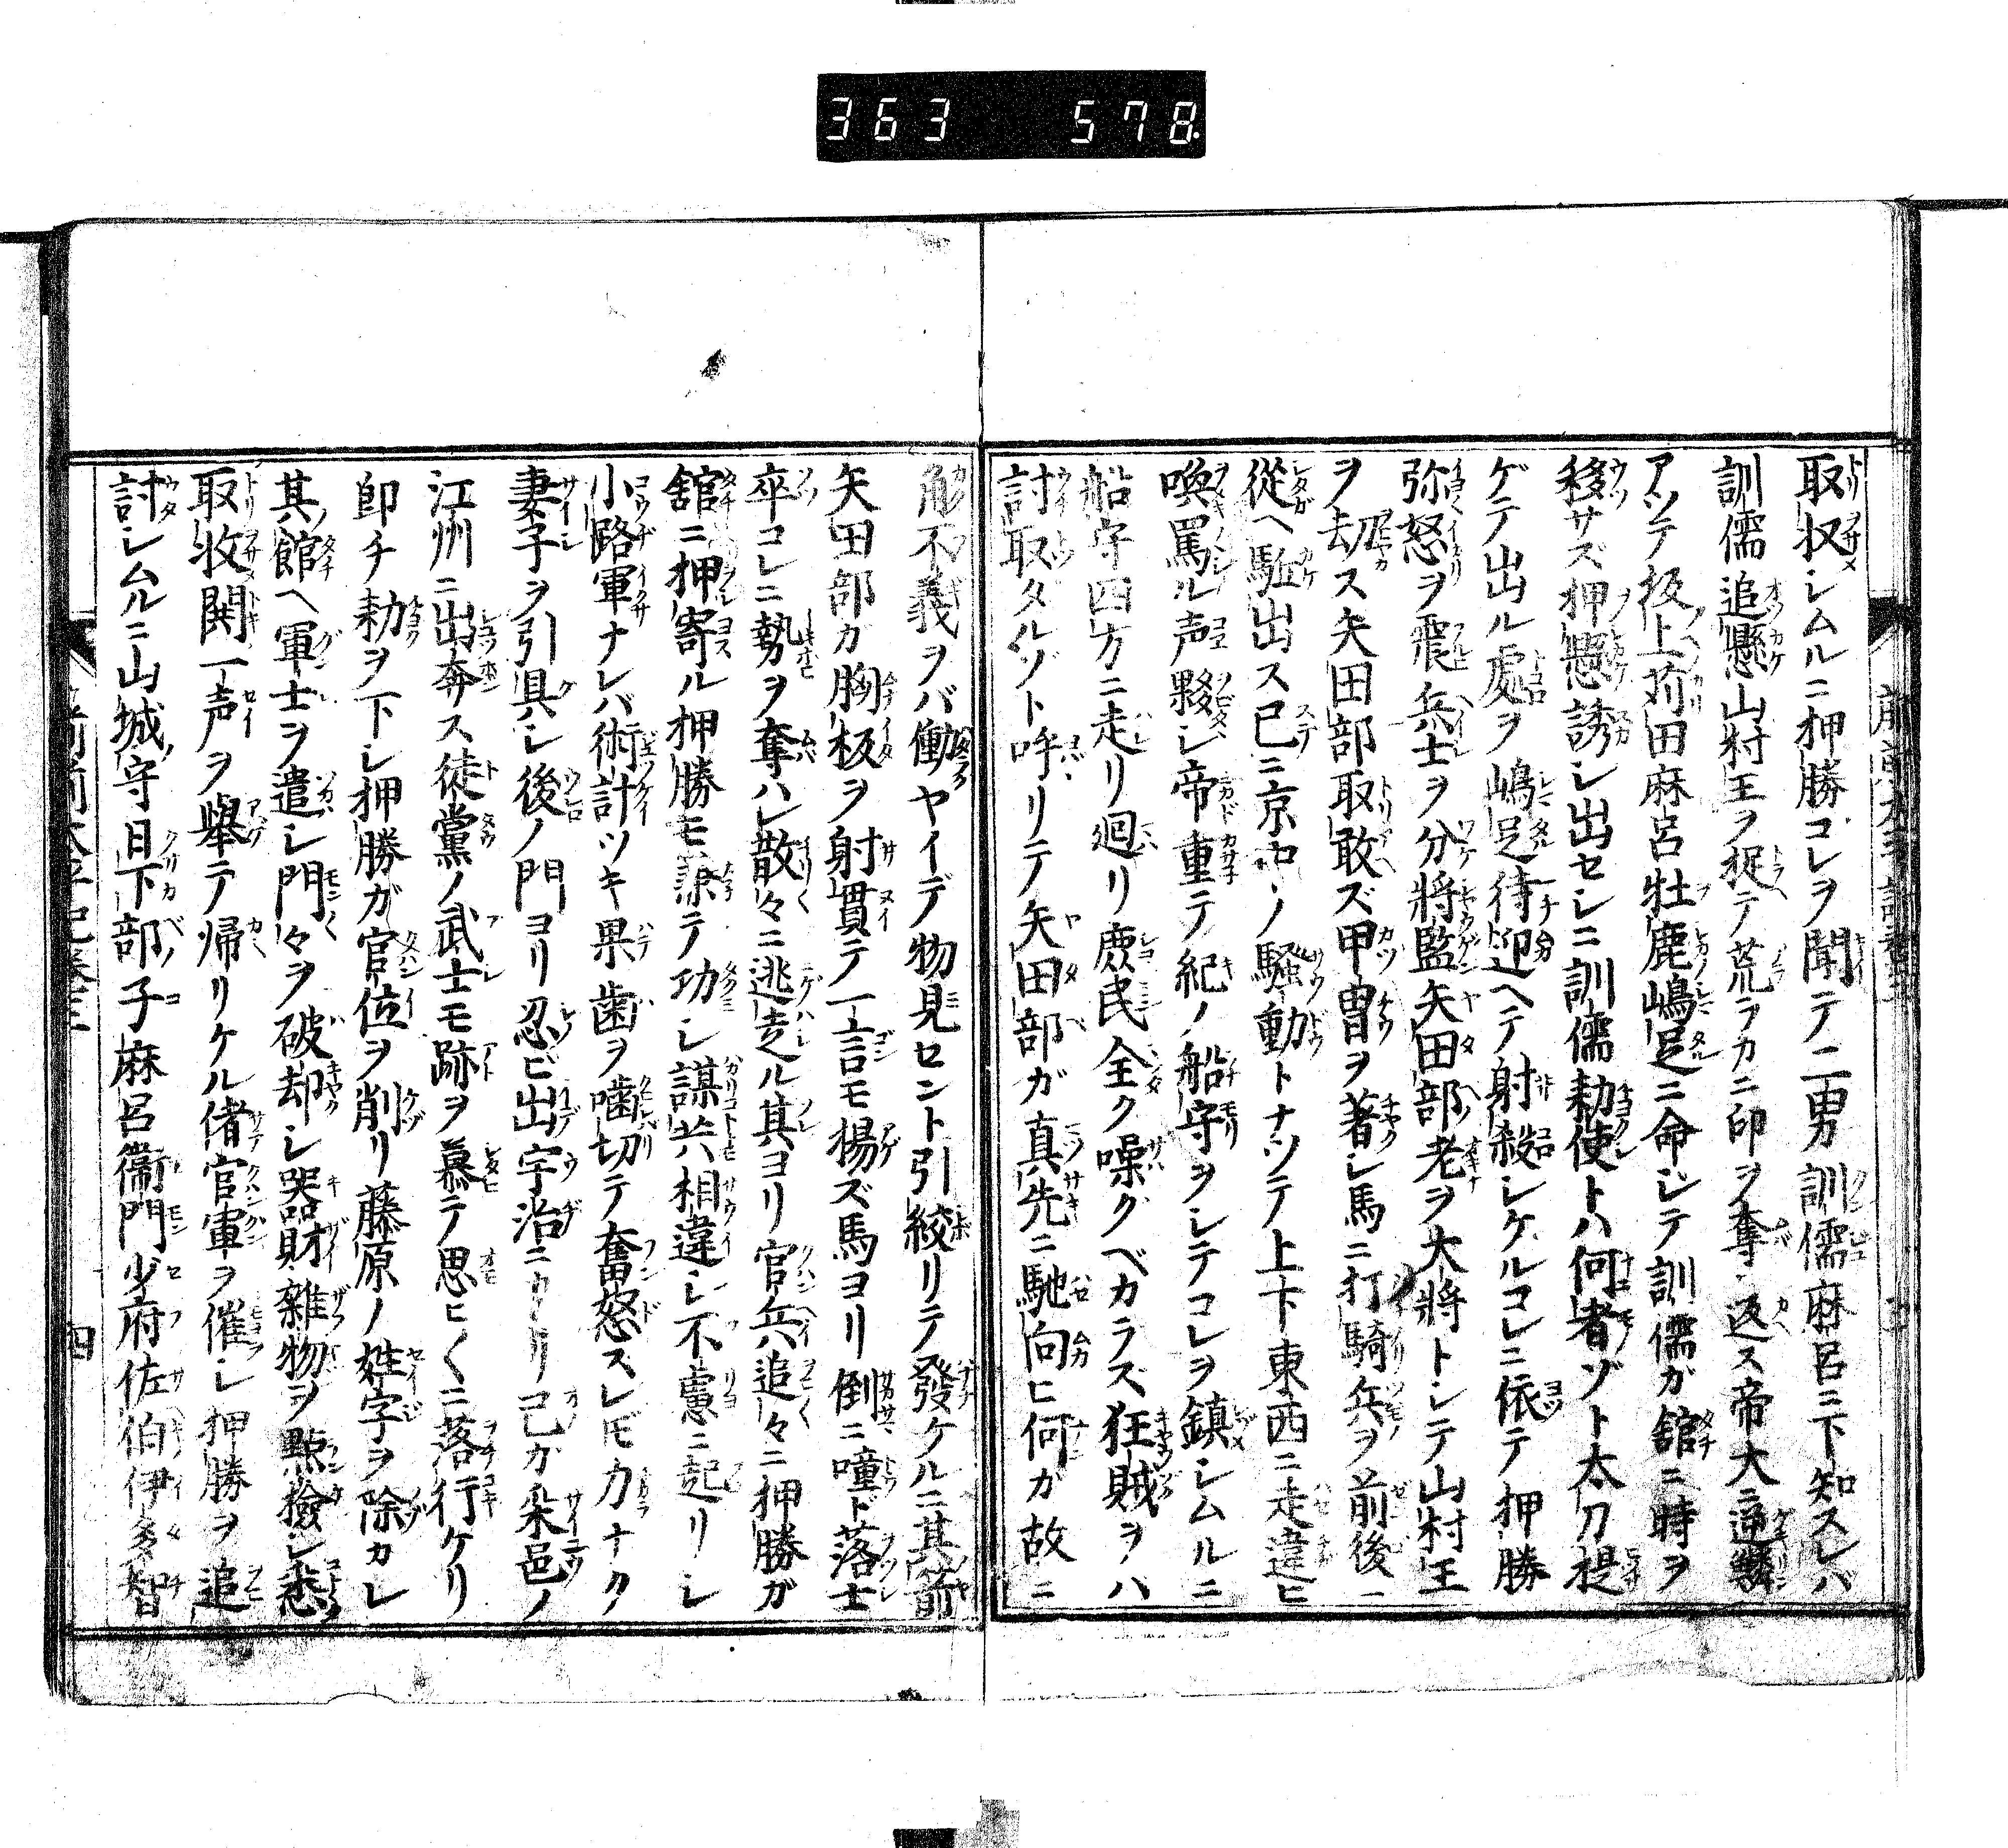 363 578
取収シムルニ押勝コレヲ聞テ二男訓儒麻呂ニ下知スレバ
訓儒追懸山村王ヲ捉テ荒ラカニ印ヲ奪返ス帝大ニ逆鱗
アツテ坂上苅田麻呂牡鹿嶋足ニ命シテ訓儒ガ舘ニ時ヲ
移サズ押懸誘シ出セシニ訓儒勅使トハ何者ゾト太刀提
ゲテ出ル處ヲ嶋足待迎ヘテ射殺シケルコレニ依テ押勝
弥怒ヲ震兵士ヲ分將監矢田部老ヲ大將トシテ山村王
ヲ刧ス矢田部取敢ズ甲冑ヲ著シ馬ニ打騎兵ヲ前後ニ
從ヘ駈出ス已ニ京中ノ騷動トナツテ上下東西ニ走違ヒ
喚罵ル声夥シ帝重テ紀ノ船守ヲシテコレヲ鎮シムルニ
船守四方ニ走リ廻リ庶民全ク噪グベカラズ狂賊ヲハ
討取タルゾト呼ハリテ矢田部ガ真先ニ馳向ヒ何ガ故ニ
不義ヲバ働ヤイデ物見セント引絞リテ發ケルニ其箭
矢田部カ胸板ヲ射貫テ一言モ揚ズ馬ヨリ倒ニ噇ト落士
卒コレニ勢ヲ奪ハレ散々ニ逃走ル其ヨリ官兵追々ニ押勝ガ
舘ニ押寄ル押勝モ兼テ功シ謀共相違シ不慮ニ起リシ
小路軍ナレバ術計ツキ果歯ヲ噛切テ奮怒スレ𪜈力ナク
妻子ヲ引具シ後ノ門ヨリ忍ビ出宇治ニカヽリ己カ采邑ノ
江州ニ出奔ス徒黨ノ武士モ跡ヲ慕テ思ヒ〱ニ落行ケリ
即チ勅ヲ下シ押勝ガ官位ヲ削リ藤原ノ姓字ヲ除カレ
其館ヘ軍士ヲ遣シ門々ヲ破却シ器財雜物ヲ點撿シ悉
取收鬨一声ヲ舉テ帰リケル偖官軍ヲ催シ押勝ヲ追
討シムルニ山城守日下部子麻呂衞門少府佐伯伊多智
四